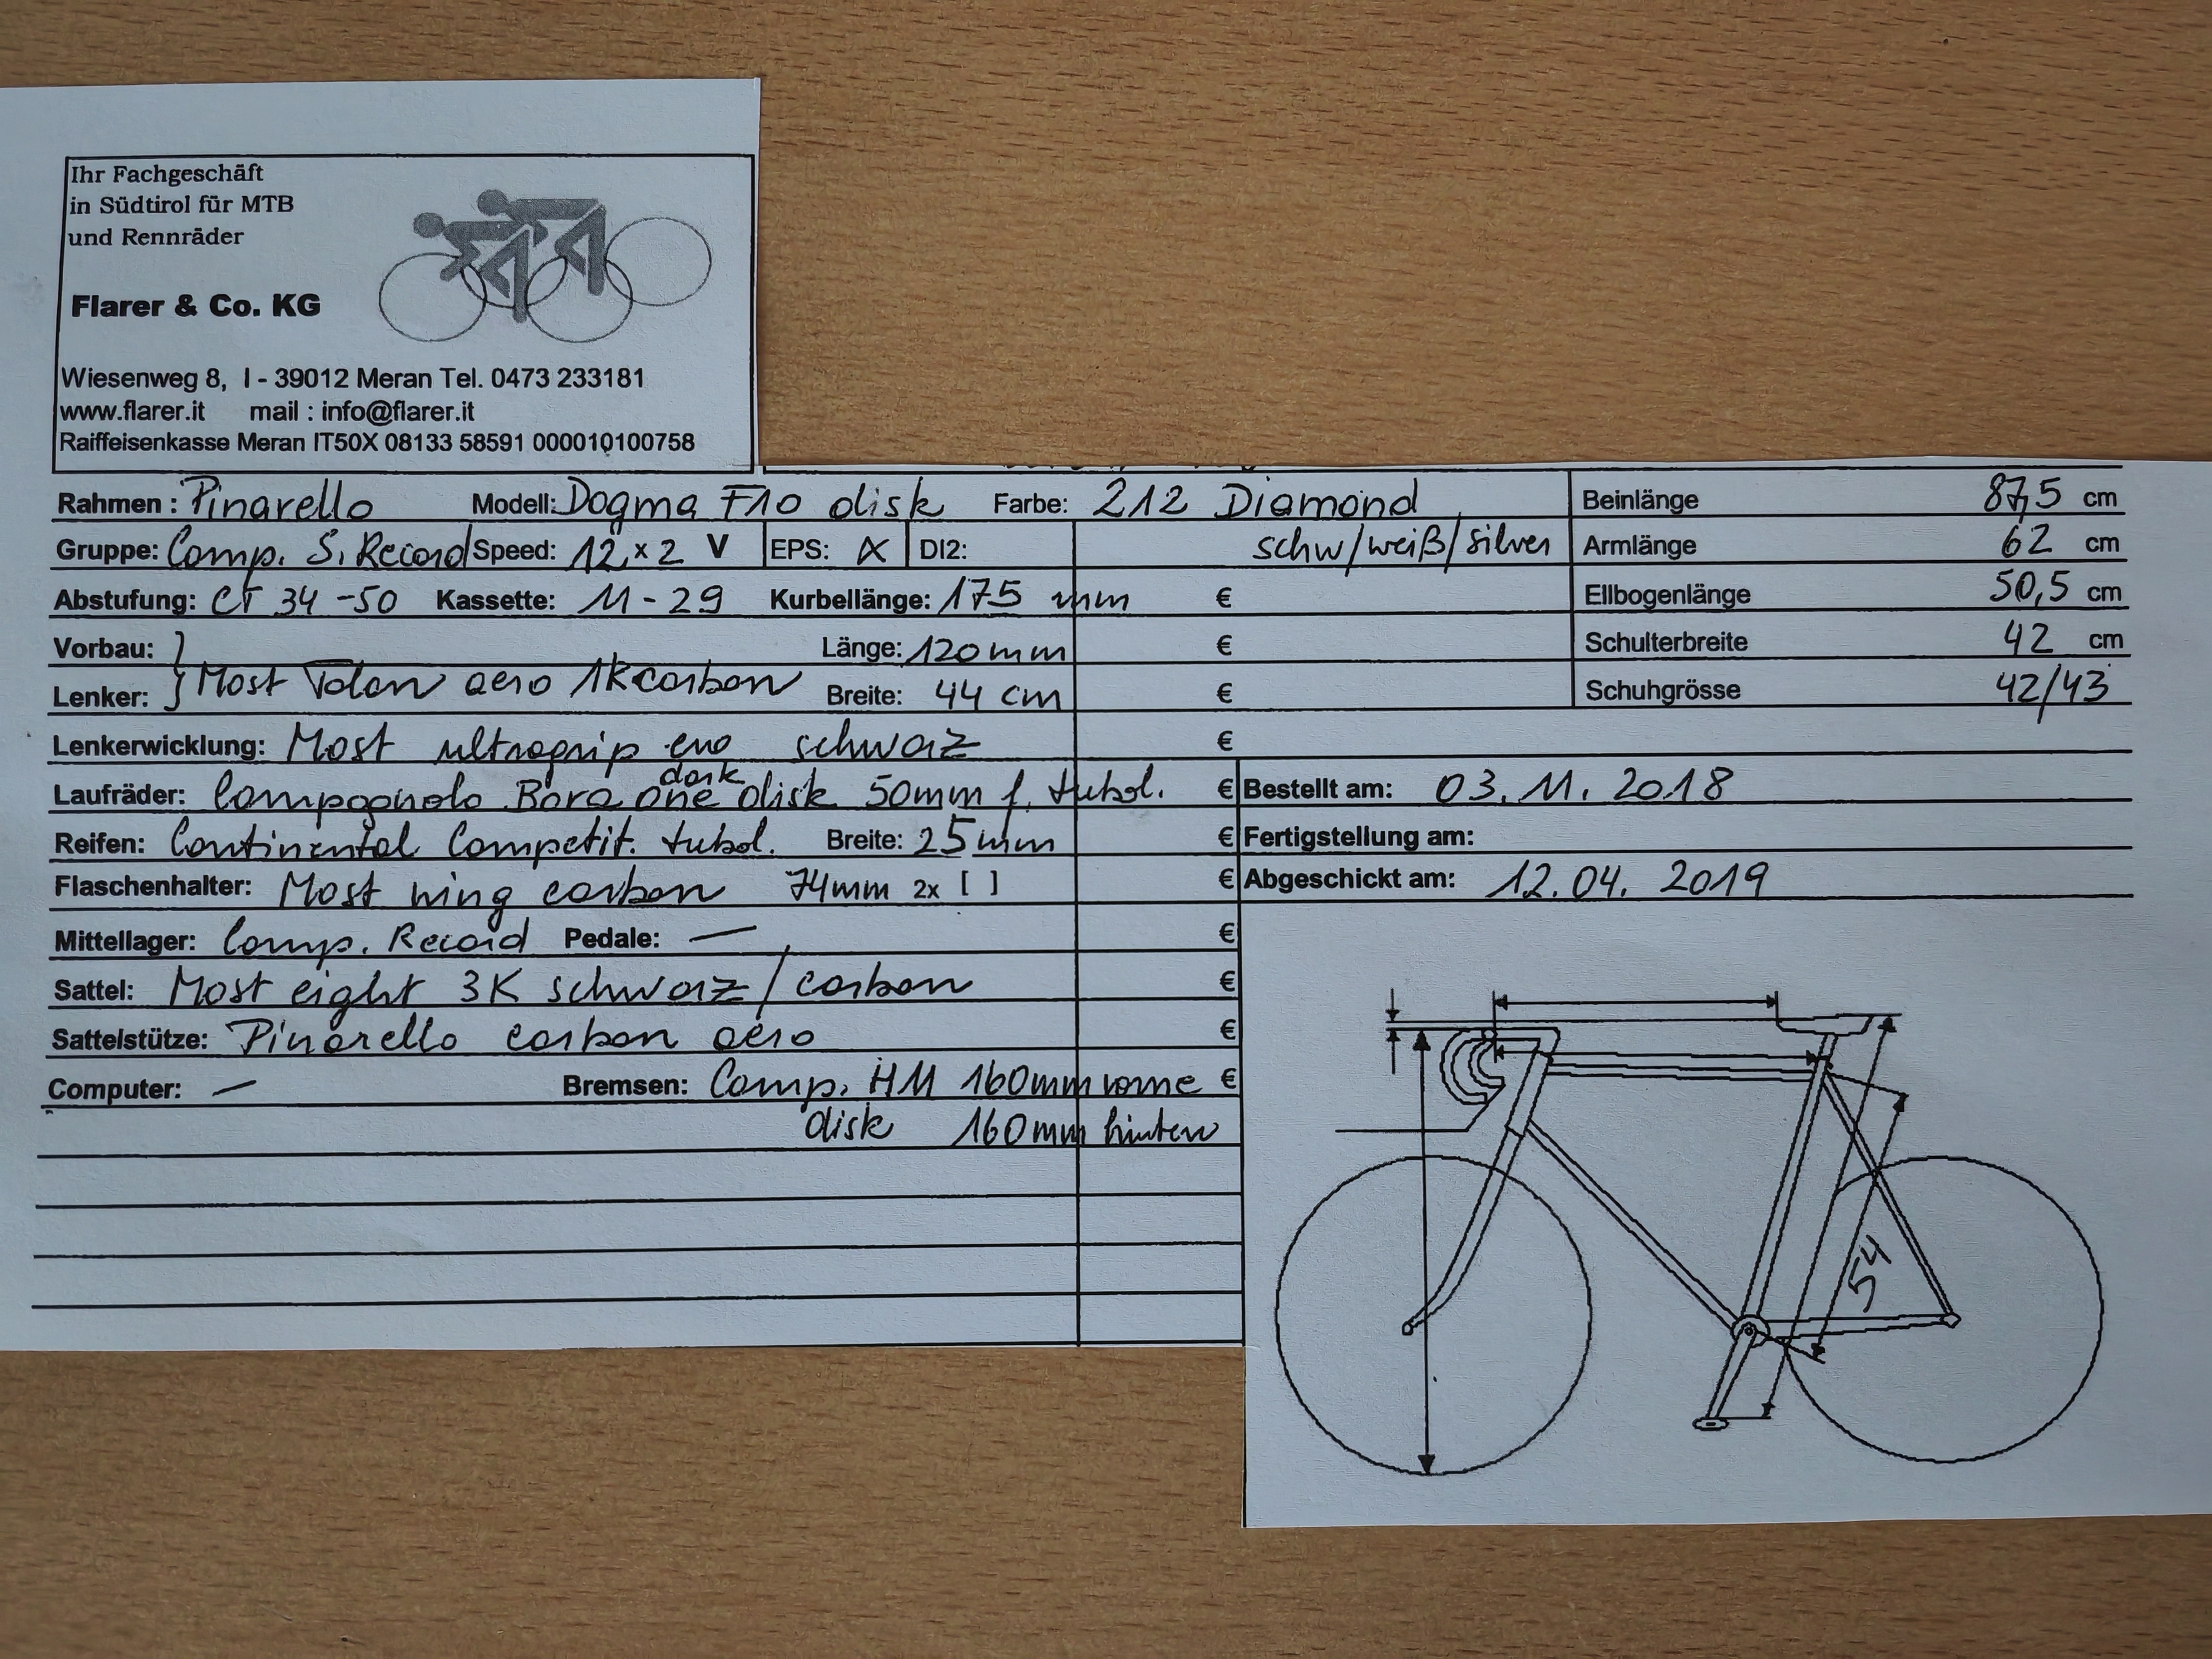 Ihr Fachgeschäft
in Südtirol für MTB
und Rennräder
Flarer & Co. KG
Wiesenweg 8, I - 39012 Meran Tel. 0473 233181
www.flarer.it mail : info@flarer.it
Raiffeisenkasse Meran IT50X 08133 58591 000010100758
Rahmen : Pinarello Modell: Dogma F10 disk Farbe: 212 Diamond
Gruppe: Camp. S. Record Speed: 12 x 2 V EPS: X DI2: schw/weiß/silver
Abstufung: CT 34-50 Kassette: 11-29 Kurbellänge: 175 mm €
Vorbau: Länge: 120 mm €
Lenker: Most Talon aero 1K carbon Breite: 44 cm €
Lenkerwicklung: Most ultragrip evo schwarz €
Laufräder: Campagnolo Bora one dark disk 50mm f. tubol. €
Reifen: Continental Competit. tubol. Breite: 25 mm €
Flaschenhalter: Most wing carbon 74mm 2x [ ] €
Mittellager: Camp. Record Pedale: — €
Sattel: Most eight 3K schwarz/carbon €
Sattelstütze: Pinarello carbon aero €
Computer: — Bremsen: Camp. H11 160mm vorne €
disk 160mm hinten
Beinlänge 87,5 cm
Armlänge 62 cm
Ellbogenlänge 50,5 cm
Schulterbreite 42 cm
Schuhgrösse 42/43
Bestellt am: 03.11.2018
Fertigstellung am:
Abgeschickt am: 12.04.2019
54